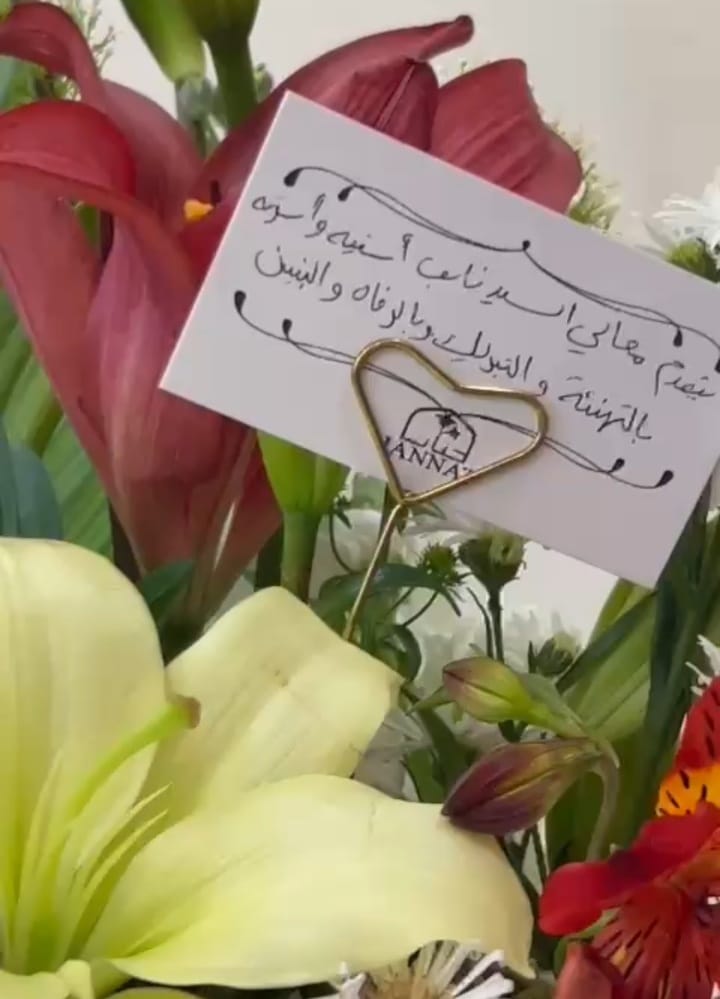 يتقدم معالي السيد نايب أسفيه وأسرته
بالتهنئة والتبريك وبالرفاه والبنين
جنات
JANNAT